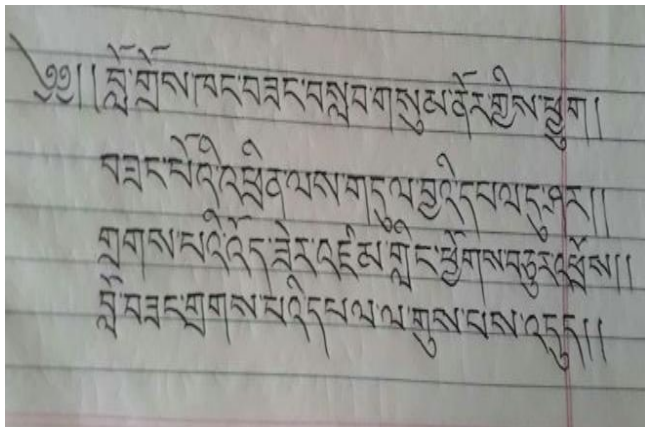 ༄༅།།བློ་གྲོས་ཁང་བཟང་བསླབ་གསུམ་ནོར་གྱིས་ཕྱུག།
བཟང་པོའི་འཕྲིན་ལས་གདུལ་བྱའི་དཔལ་དུ་ཤར།།
གྲགས་པའི་འོད་ཟེར་འཛམ་གླིང་ཕྱོགས་བཅུར་འཕྲོས།།
བློ་བཟང་གྲགས་པའི་དཔལ་ལ་གུས་པས་འདུད།།